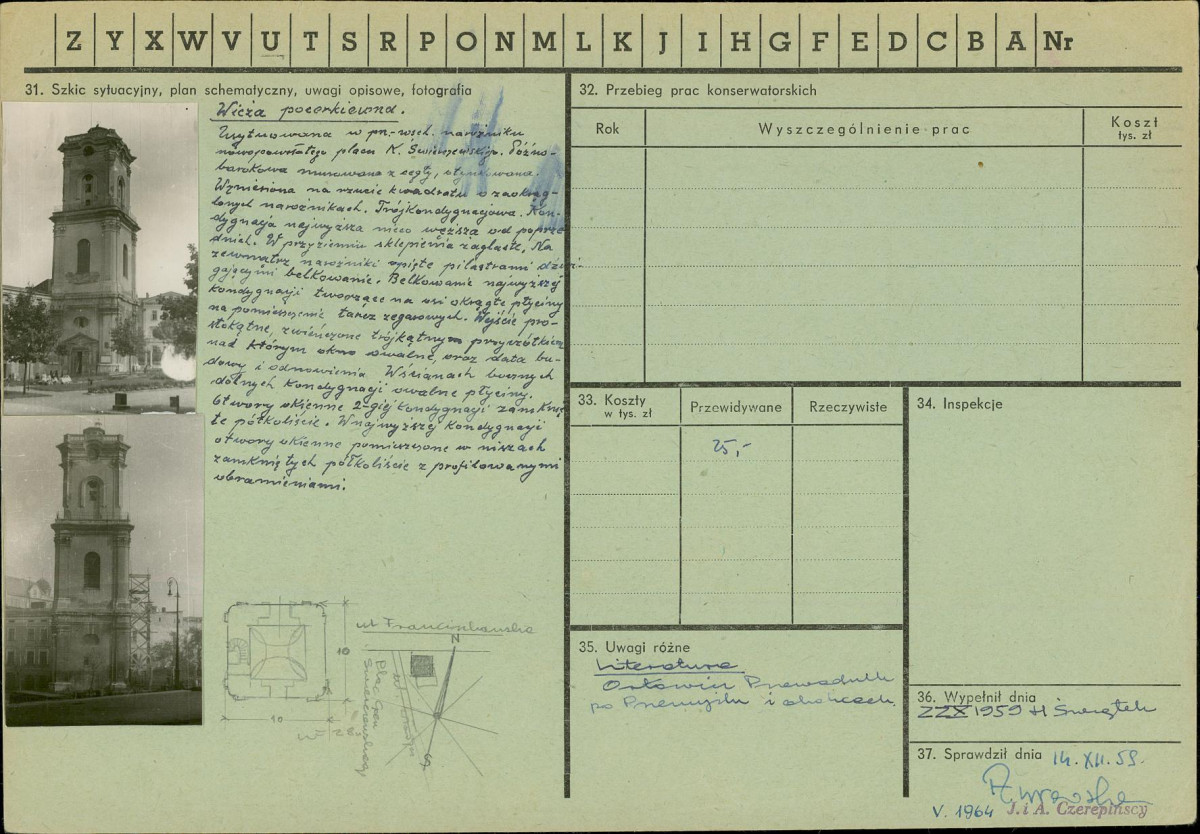 Z Y X W V U T S R P O N M L K J I H G F E D C B A Nr
31. Szkic sytuacyjny, plan schematyczny, uwagi opisowe, fotografia
Wieża pocerkiewna.
Usytuowana w pn.-wsch. narożniku
nowopowstałego placu K. Świerczewskiego. Późno-
barokowa murowana z cegły, otynkowana.
Wzniesiona na rzucie kwadratu o zaokrąg-
lonych narożnikach. Trójkondygnacjowa. Kon-
dygnacja najwyższa nieco węższa od poprze
dnich. W przyziemiu sklepienia żaglaste, Na
zewnątrz narożniki spięte pilastrami dźwi-
gającymi belkowanie. Belkowanie najwyższej
kondygnacji tworzące na osi okrągłe płyciny
na pomieszczenie tarcz zegarowych. Wejście pro-
stokątne, zwieńczone trójkątnym przyczółkiem
nad którym okno owalne, oraz data bu-
dowy i odnowienia W ścianach bocznych
dolnych kondygnacji owalne płyciny.
Otwory okienne 2-giej kondygnacji zamknię
te półkoliście. W najwyższej kondygnacji
otwory okienne pomieszczone w niszach
zamkniętych półkoliście z profilowanymi
obramieniami.
ul Franciszkańska
N
10
10
Plac Gen
Świerczewskiego
32. Przebieg prac konserwatorskich
Rok
Wyszczególnienie prac
Koszt
tys. zł
33. Koszty
w tys. zł
Przewidywane
Rzeczywiste
25,-
34. Inspekcje
35. Uwagi różne
Literatura
Orłowicz Przewodnik
po Przemyślu i okolicach.
36. Wypełnił dnia
ZZX 1959 H Świątek
37. Sprawdził dnia 14. XII. 59.
V. 1964 J. i A. Czerepińscy